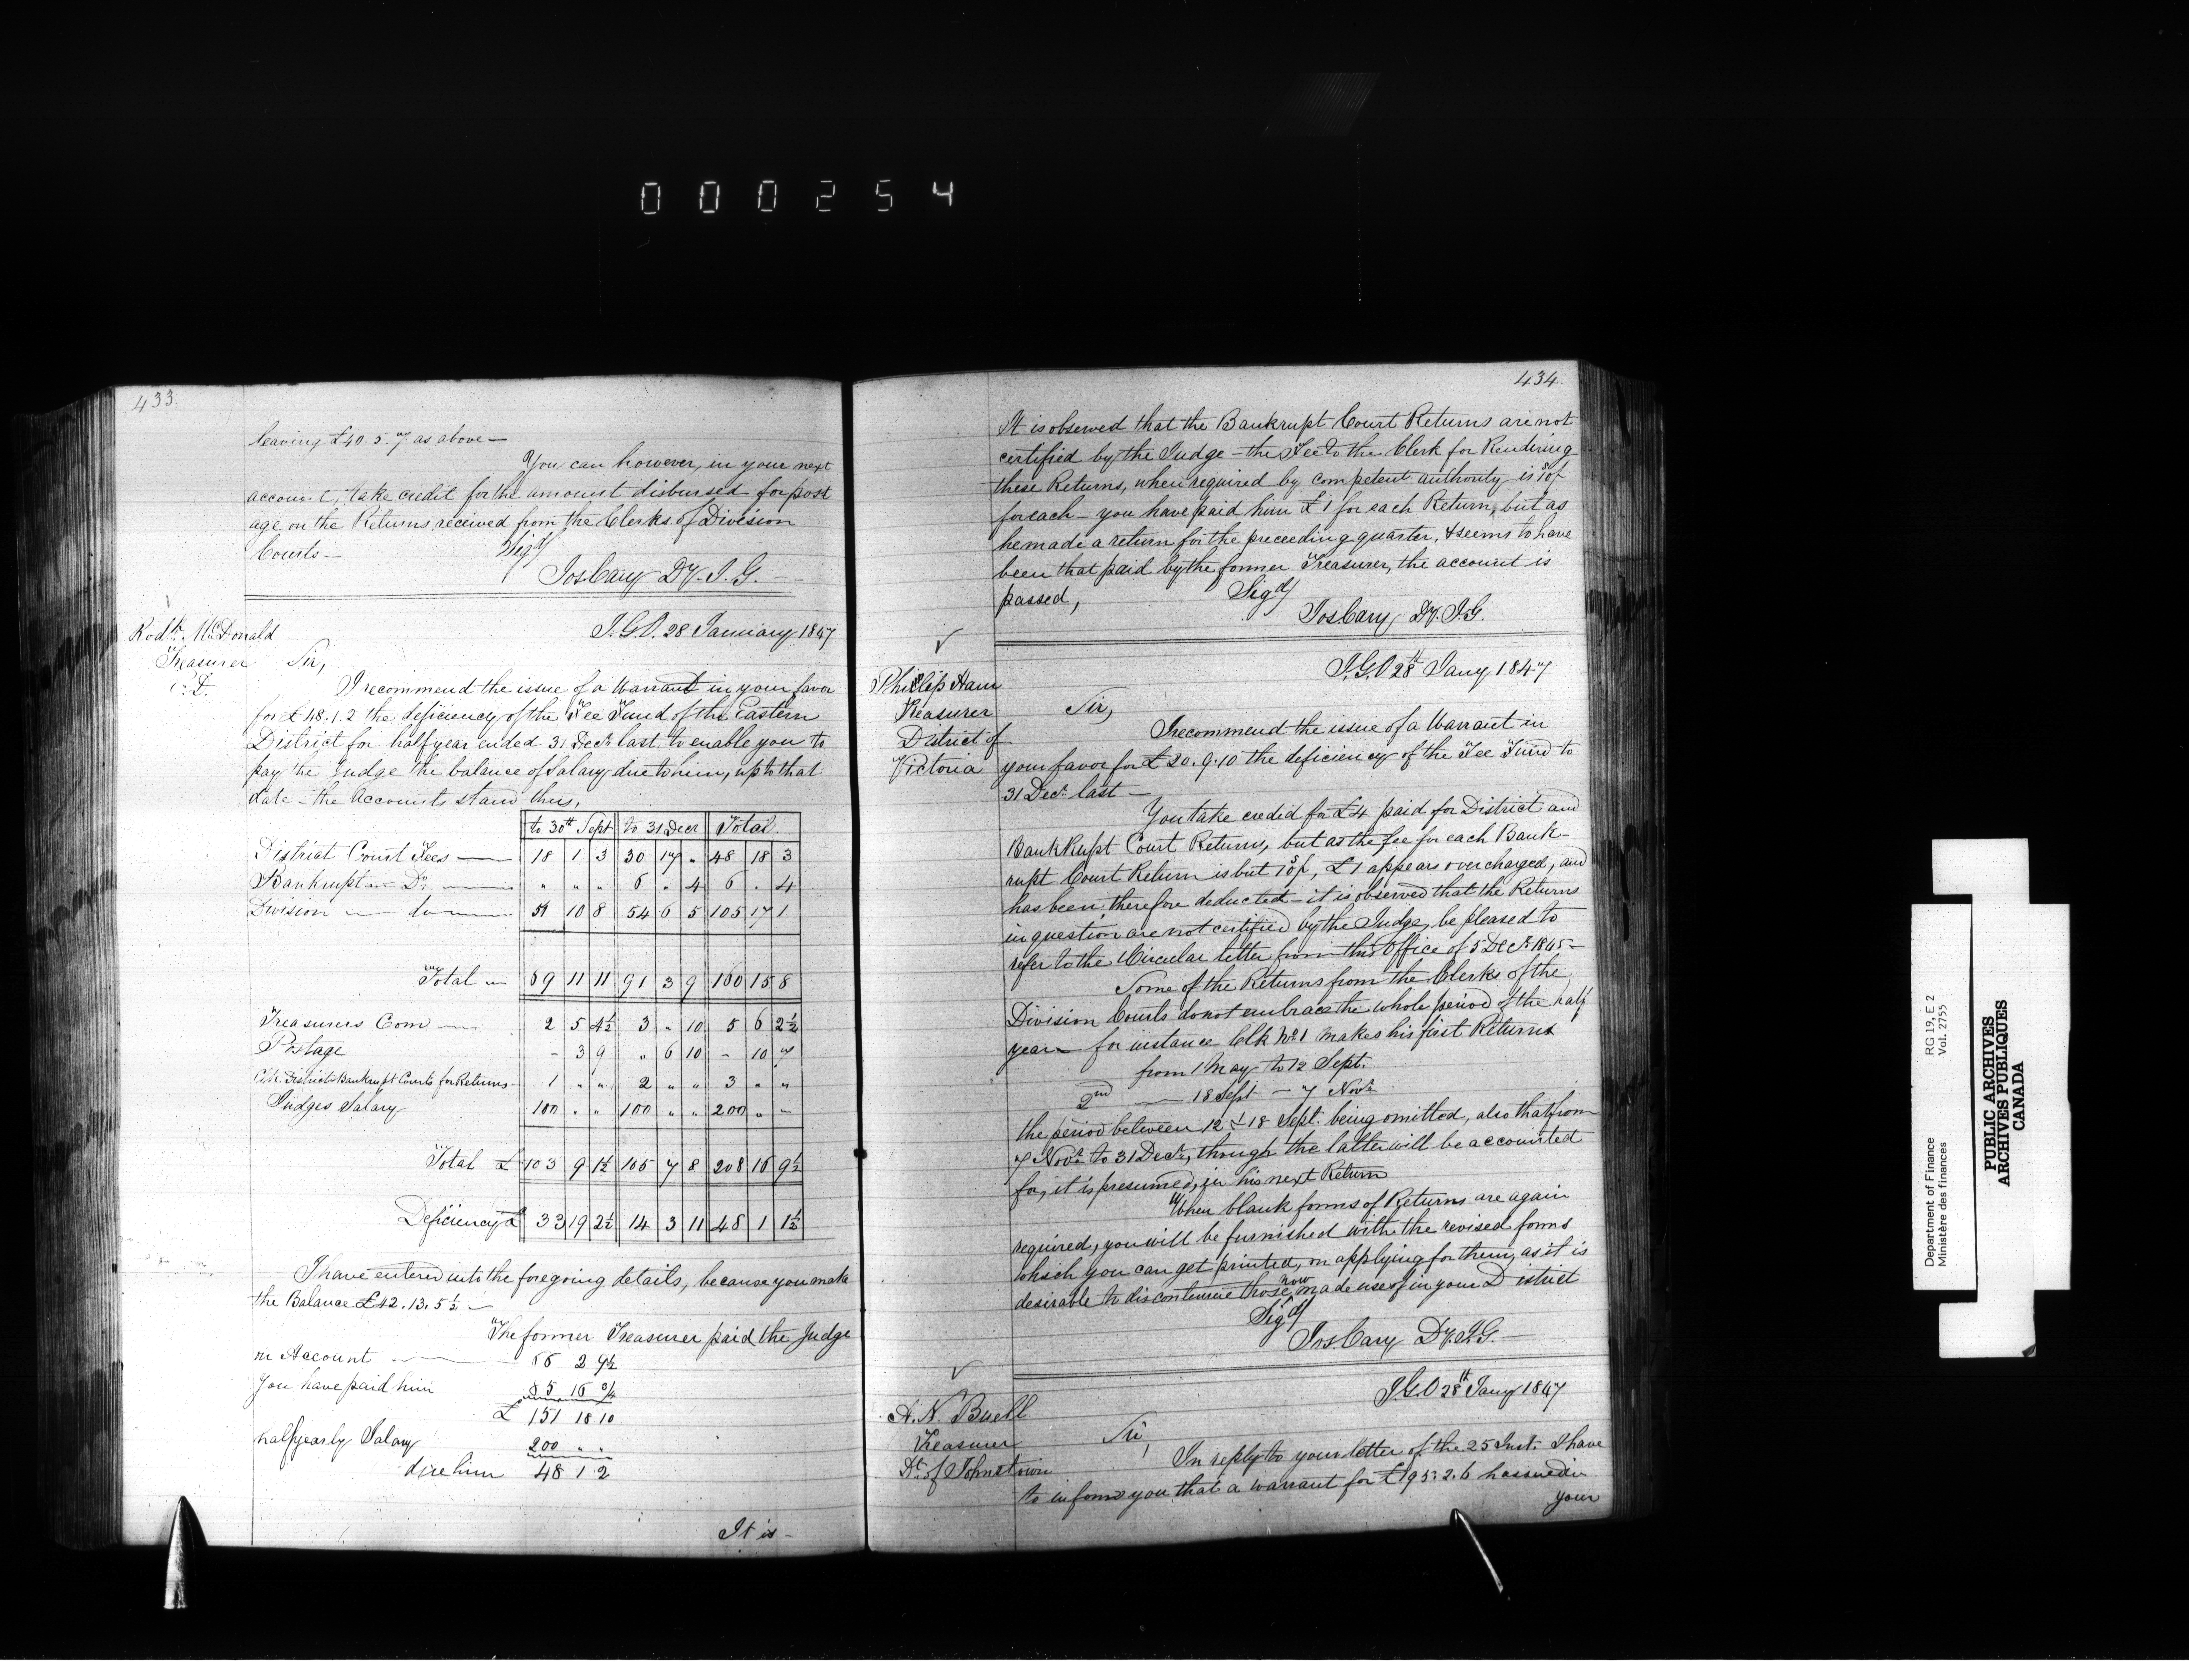 000254
433
leaving £40.5.7 as above —
You can however, in your next
account, take credit for the amount disbursed for post
age on the Returns received from the Clerks of Division
Courts —
Sigd/
Jos Cary Dy. I. G. —
Rodk. McDonald
Treasurer
E. D.
I.G.O. 28 January 1847
Sir,
I recommend the issue of a Warrant in your favor
for £48.1.2 the deficiency of the Fee Fund of the Eastern
District for half year ended 31 Decr last, to enable you to
pay the Judge the balance of Salary due to him, up to that
date — the Accounts stand thus,
to 30th Sept to 31 Decr Total
District Court Fees — 18 1 3 30 17 „ 48 18 3
Bankrupt — Do — „ „ „ 6 „ 4 6 „ 4
Division — do — 51 10 8 54 6 5 105 17 1
Total — 69 11 11 91 3 9 160 15 8
Treasurers Com — 2 5 4½ 3 „ 10 5 6 2½
Postage – 3 9 „ 6 10 – 10 7
Clk District & Bankrupt Courts for Returns 1 „ „ 2 „ „ 3 „ „
Judges Salary 100 „ „ 100 „ „ 200 „ „
Total £ 103 9 1½ 105 7 8 208 16 9½
Deficiency £ 33 19 2½ 14 3 11 48 1 1½
I have entered into the foregoing details, because you make
the Balance £42.13.5½ —
The former Treasurer paid the Judge
on Account — 66 2 9½
You have paid him 85 16 0½
£ 151 18 10
half yearly Salary 200 „ „
due him 48 1 2
It is —
434
It is observed that the Bankrupt Court Returns are not
certified by the Judge — the Fee to the Clerk for Rendering
these Returns, when required by competent authority is 10s/
for each — you have paid him £1 for each Return, but as
he made a return for the preceeding quarter, & seems to have
been that paid by the former Treasurer, the account is
passed,
Sigd/
Jos Cary Dy. I.G.
Phillip Ham
Treasurer
District of
Victoria
I.G.O 28th Jany 1847
Sir,
I recommend the issue of a Warrant in
your favor for £20.9.10 the deficiency of the Fee Fund to
31 Decr last —
You take credit for £4 paid for District and
BankRupt Court Returns, but as the fee for each Bank-
rupt Court Return is but 10s/, £1 appears overcharged, and
has been therefore deducted — it is observed that the Returns
in question are not certified by the Judge, be pleased to
refer to the Circular letter from this Office of 5 Decr 1845 —
Some of the Returns from the Clerks of the
Division Courts do not embrace the whole period of the half
year — for instance Clk No 1 makes his first Returns
from 1 May to 12 Sept.
2nd — 18 Sept — 7 Novr
the period between 12 & 18 Sept. being omitted, also that from
7 Novr to 31 Decr, though the latter will be accounted
for, it is presumed, in his next Return
When blank forms of Returns are again
required, you will be furnished with the revised forms
which you can get printed, on applying for them, as it is
desirable to discontinue those now made use of in your District
Sigd/
Jos Cary Dy. I.G. —
A. N. Buell
Treasurer
Dt. of Johnstown
I.G.O 28th Jany 1847
Sir,
In reply to your letter of the 25 Inst. I have
to inform you that a warrant for £195.2.6 has issued in
your
Department of Finance
Ministère des finances
RG 19, E 2
Vol. 2755
PUBLIC ARCHIVES
ARCHIVES PUBLIQUES
CANADA